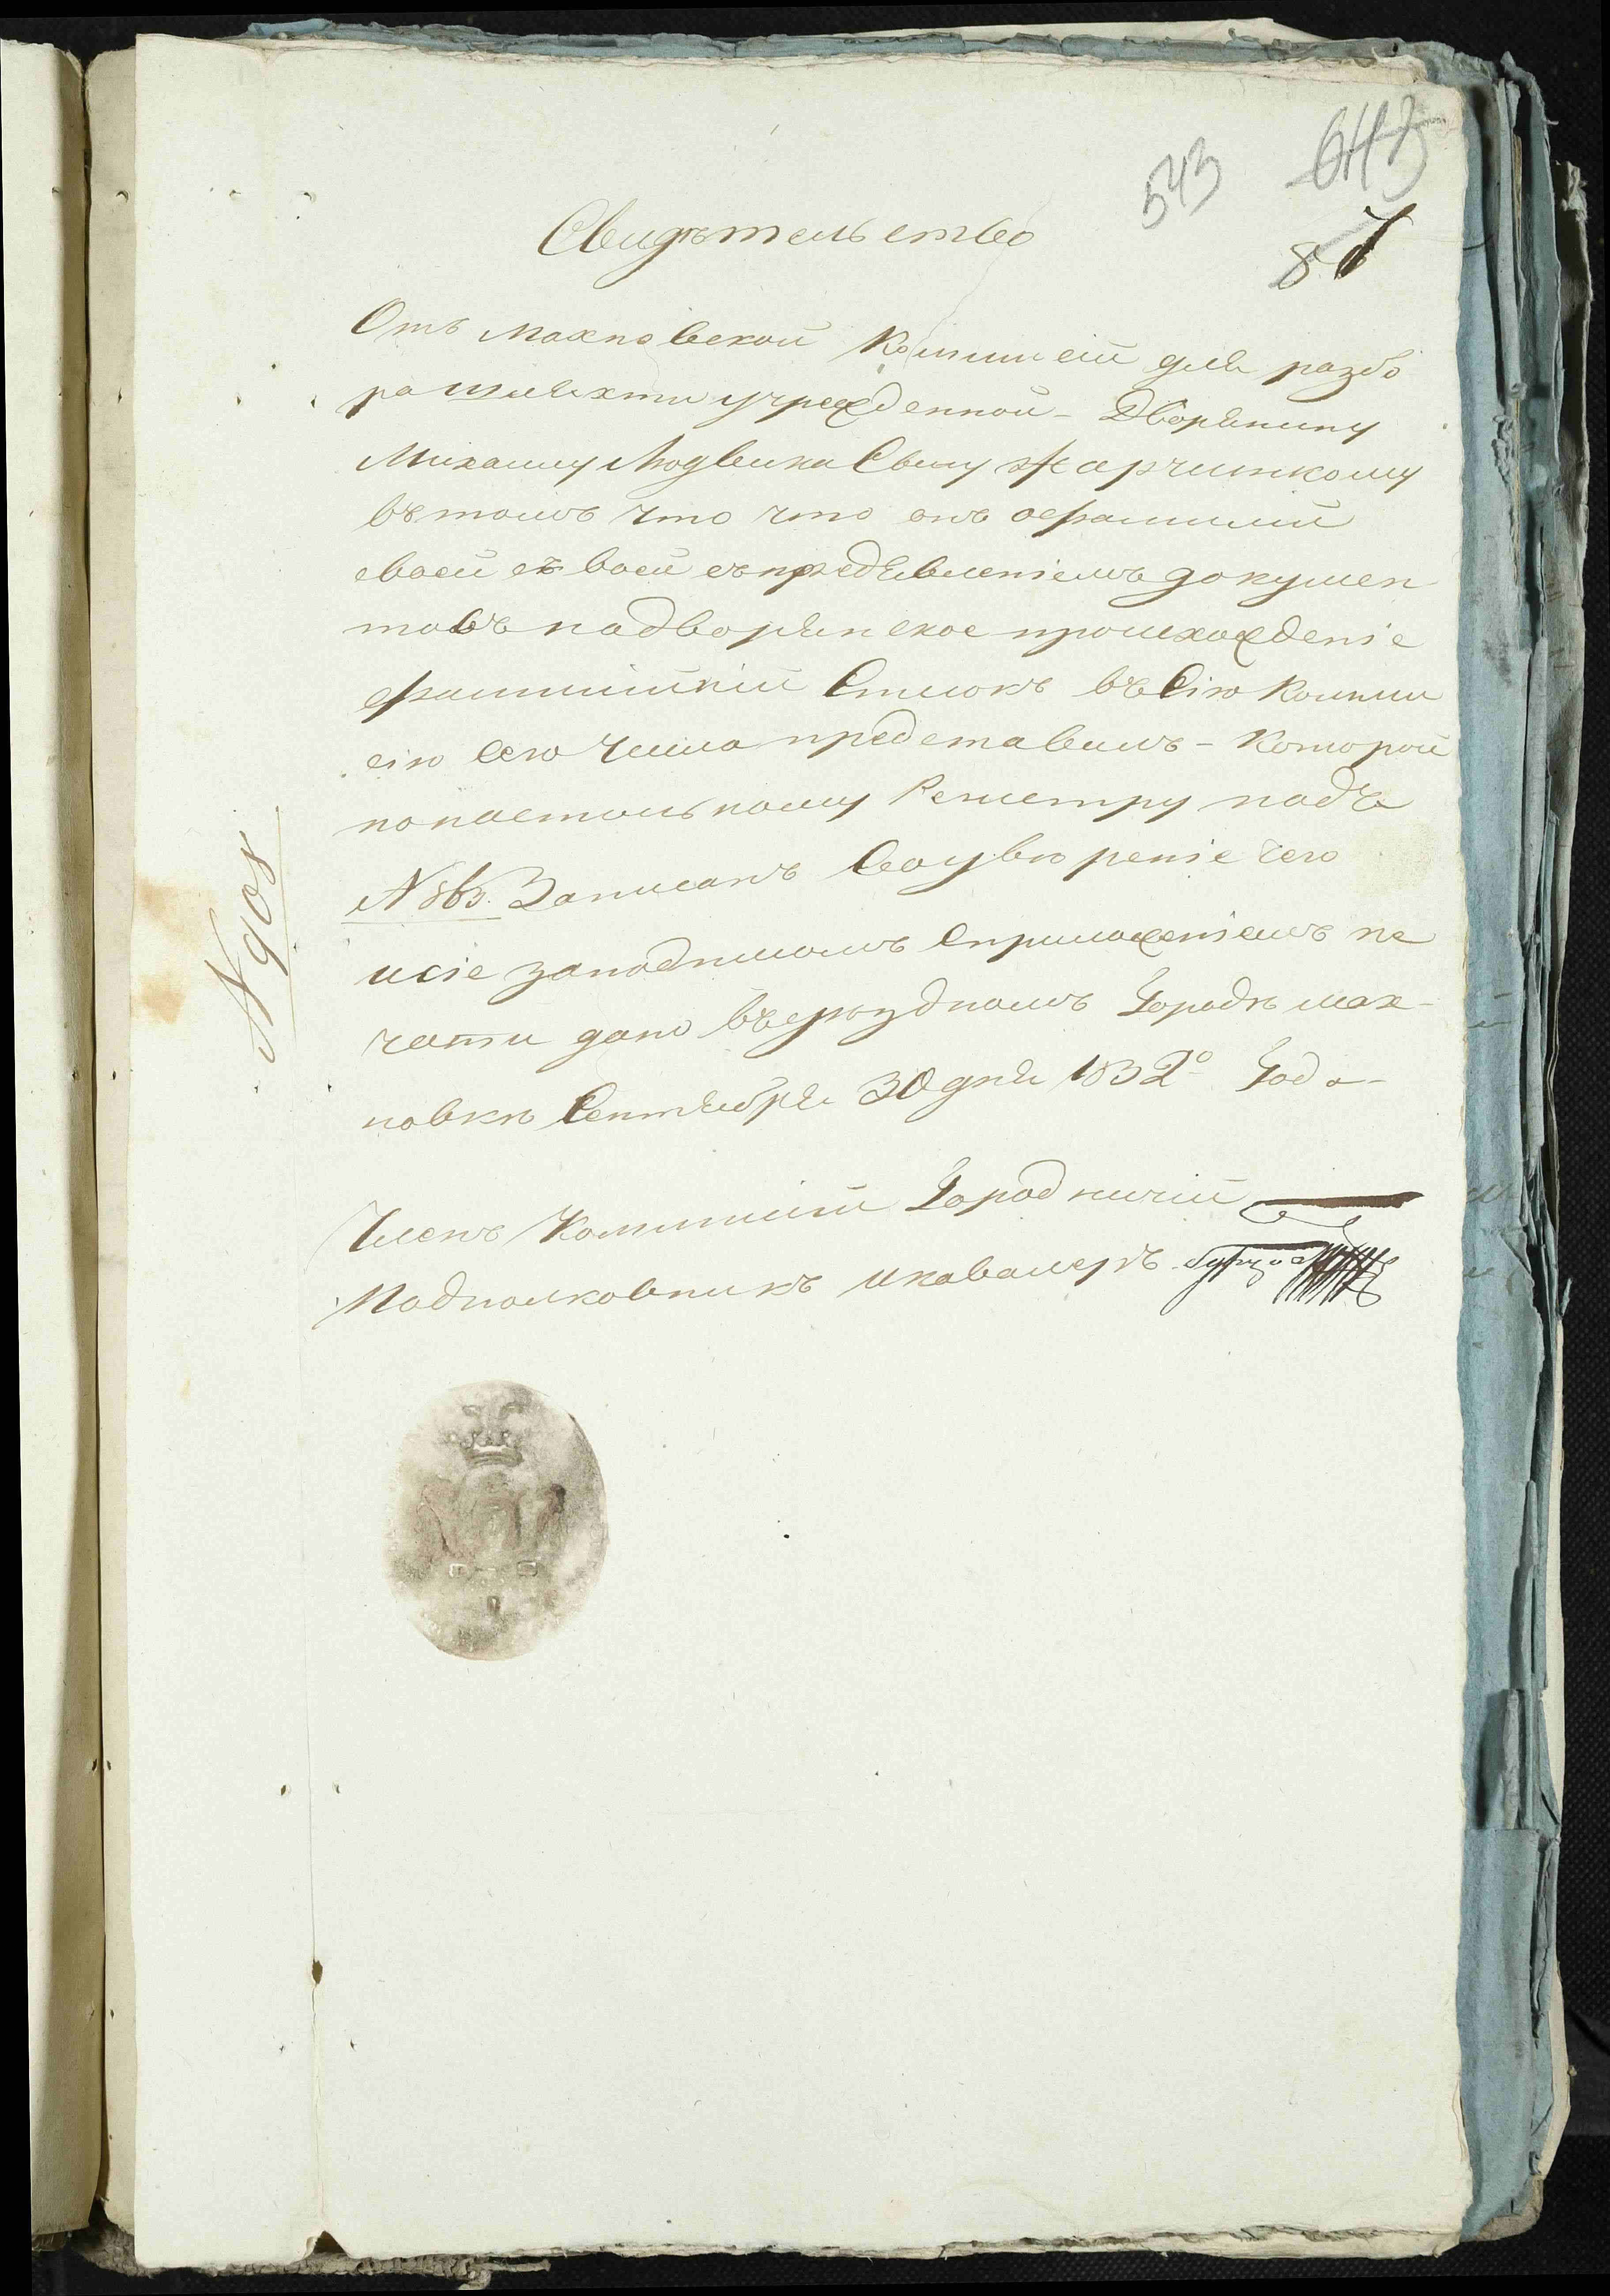 543
643
8
Свидѣтельство
Отъ Махновской Коммисіи для разбо
ра шляхты учрежденной - Дворянину
Михаилу Людвикa Сыну Жарчинскому
въ томъ что что онъ о фамиліи
своей съ предъявленіемъ докумен
товъ на дворянское происхожденіе
фамилійній Списокъ въ Сію Комми
сію Сего Числа представилъ - Которой
по настольному Реистру подъ
N 863. Записанъ Во увѣреніе чего
и сіе за подписомъ Сприложеніемъ пе
чати дано въ уѣздномъ Городѣ Мах-
новкѣ Сентября 30 дня 1832º Года -
N 908
Членъ Коммисіи Городничій
Подполковникъ и кавалеръ